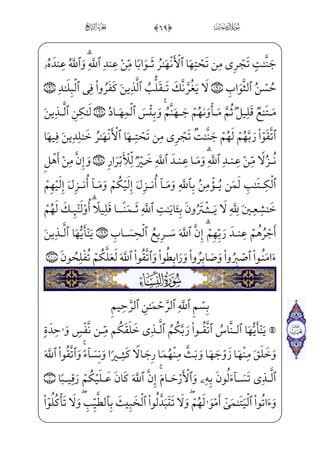 سُورَةُ آلِ عِمْرَانَ ﴿٦٩﴾ الجُزْءُ الرَّابِعُ
جَنَّٰتٖ تَجْرِي مِن تَحْتِهَا ٱلْأَنْهَٰرُ ثَوَابٗا مِّنْ عِندِ ٱللَّهِۚ وَٱللَّهُ عِندَهُۥ
حُسْنُ ٱلثَّوَابِ لَا يَغُرَّنَّكَ تَقَلُّبُ ٱلَّذِينَ كَفَرُواْ فِي ٱلْبِلَٰدِ
مَتَٰعٞ قَلِيلٞ ثُمَّ مَأْوَىٰهُمْ جَهَنَّمُۚ وَبِئْسَ ٱلْمِهَادُ لَٰكِنِ ٱلَّذِينَ
ٱتَّقَوْاْ رَبَّهُمْ لَهُمْ جَنَّٰتٞ تَجْرِي مِن تَحْتِهَا ٱلْأَنْهَٰرُ خَٰلِدِينَ فِيهَا
نُزُلٗا مِّنْ عِندِ ٱللَّهِۗ وَمَا عِندَ ٱللَّهِ خَيْرٞ لِّلْأَبْرَارِ وَإِنَّ مِنْ أَهْلِ
ٱلْكِتَٰبِ لَمَن يُؤْمِنُ بِٱللَّهِ وَمَآ أُنزِلَ إِلَيْكُمْ وَمَآ أُنزِلَ إِلَيْهِمْ
خَٰشِعِينَ لِلَّهِ لَا يَشْتَرُونَ بِـَٔايَٰتِ ٱللَّهِ ثَمَنٗا قَلِيلًاۗ أُوْلَٰٓئِكَ لَهُمْ
أَجْرُهُمْ عِندَ رَبِّهِمْۗ إِنَّ ٱللَّهَ سَرِيعُ ٱلْحِسَابِ يَٰٓأَيُّهَا ٱلَّذِينَ
ءَامَنُواْ ٱصْبِرُواْ وَصَابِرُواْ وَرَابِطُواْ وَٱتَّقُواْ ٱللَّهَ لَعَلَّكُمْ تُفْلِحُونَ
سُورَةُ النِّسَاءِ
بِسْمِ ٱللَّهِ ٱلرَّحْمَٰنِ ٱلرَّحِيمِ
يَٰٓأَيُّهَا ٱلنَّاسُ ٱتَّقُواْ رَبَّكُمُ ٱلَّذِي خَلَقَكُم مِّن نَّفْسٖ وَٰحِدَةٖ
وَخَلَقَ مِنْهَا زَوْجَهَا وَبَثَّ مِنْهُمَا رِجَالٗا كَثِيرٗا وَنِسَآءٗۚ وَٱتَّقُواْ ٱللَّهَ
ٱلَّذِي تَسَّآءَلُونَ بِهِۦ وَٱلْأَرْحَامَۚ إِنَّ ٱللَّهَ كَانَ عَلَيْكُمْ رَقِيبٗا
وَءَاتُواْ ٱلْيَتَٰمَىٰٓ أَمْوَٰلَهُمْۖ وَلَا تَتَبَدَّلُواْ ٱلْخَبِيثَ بِٱلطَّيِّبِۖ وَلَا تَأْكُلُوٓاْ